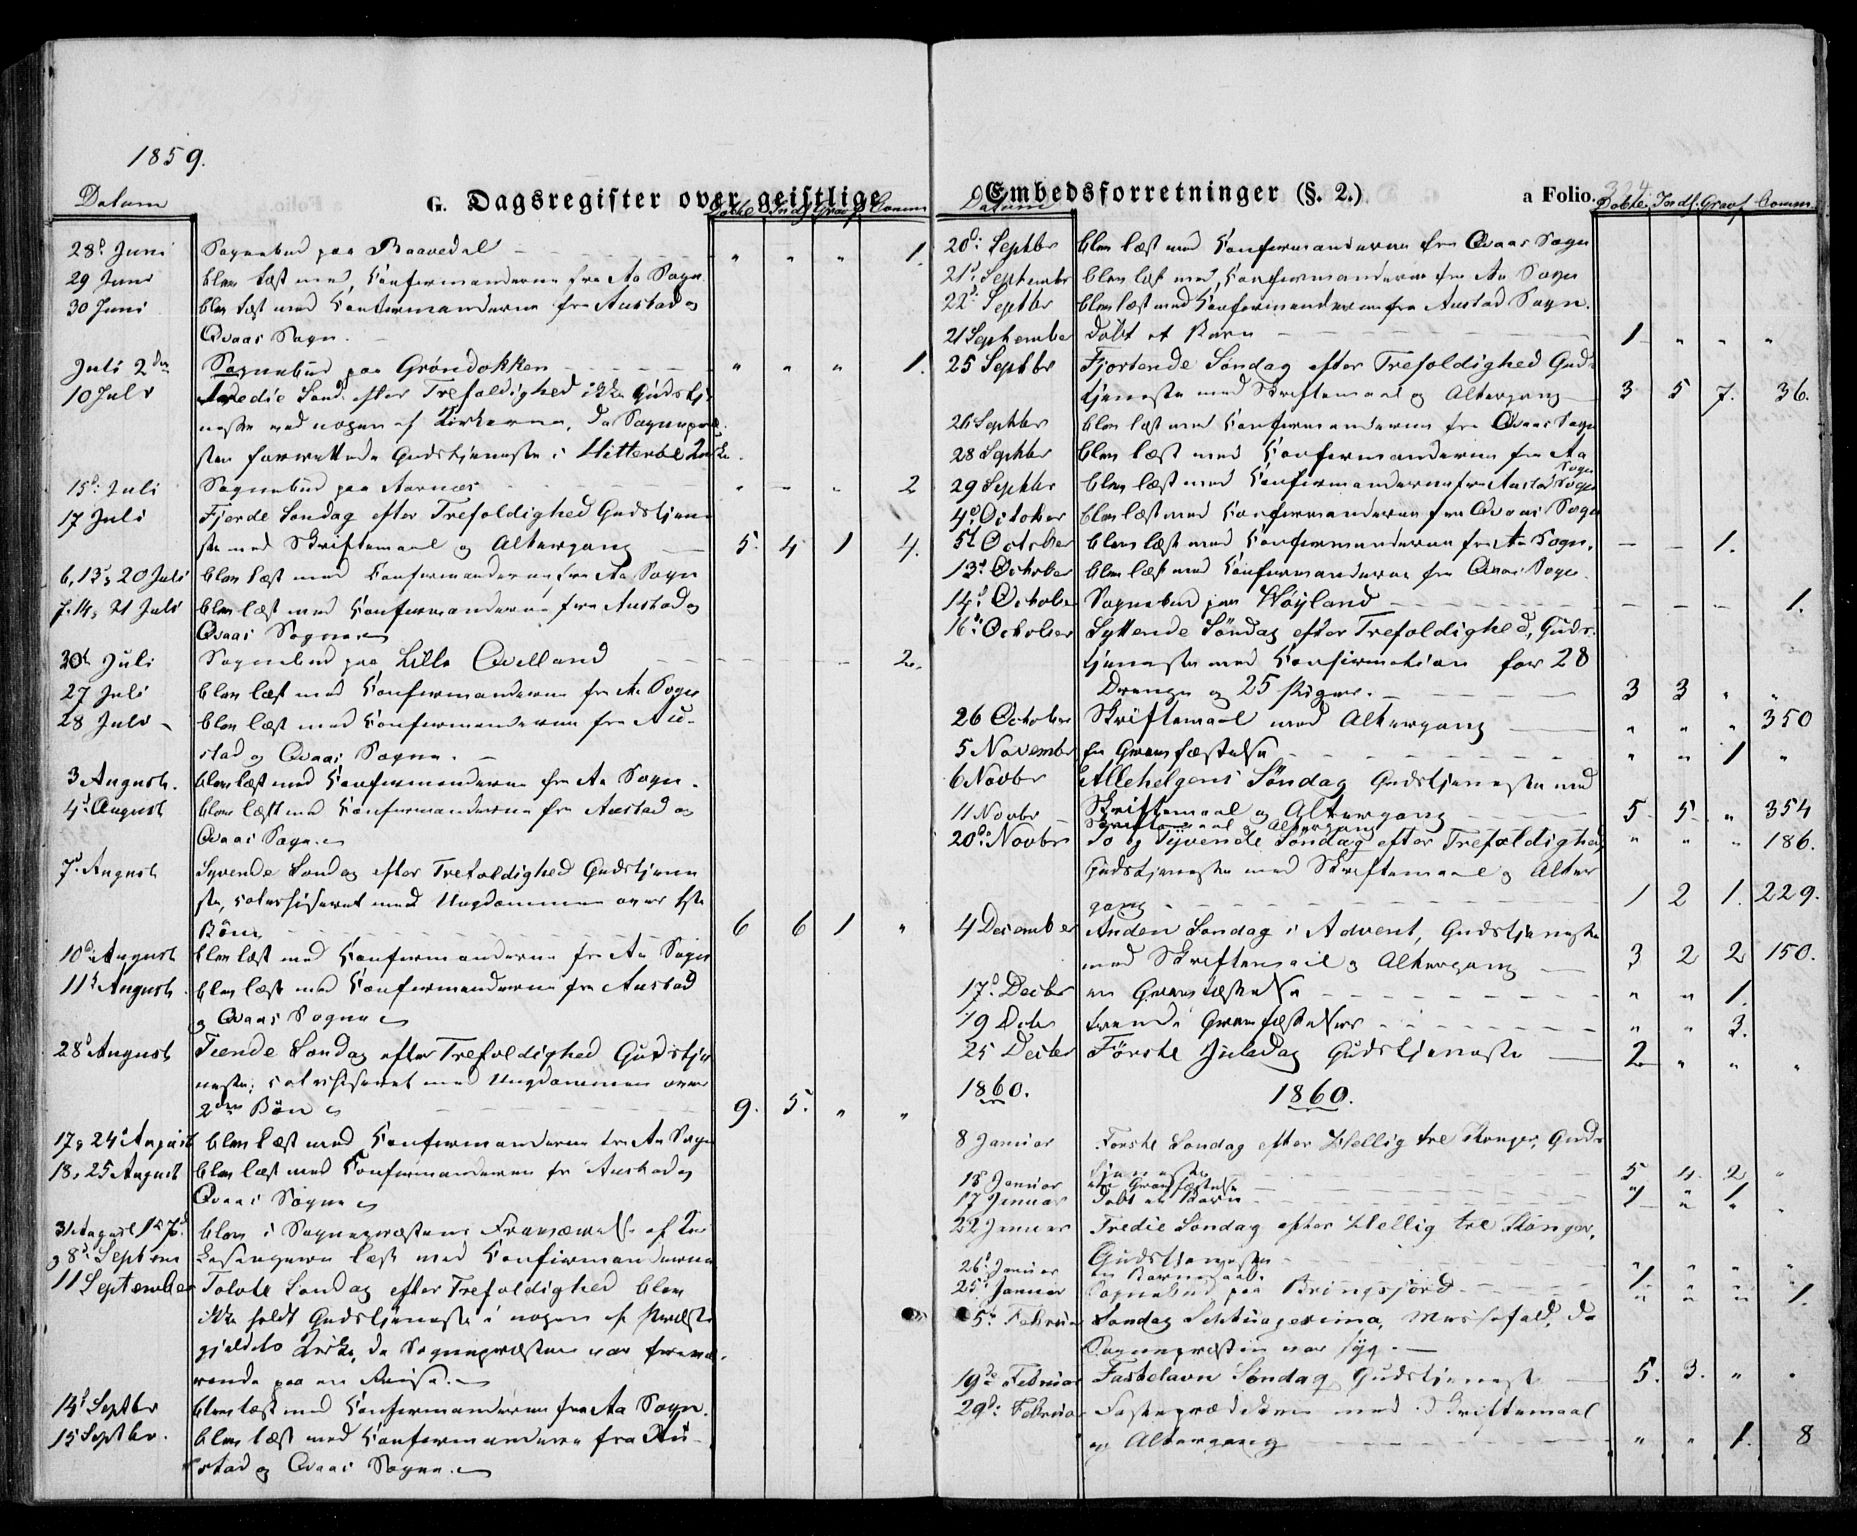 1859.
G. Dagsregister over geistlige
Datum Døbte Indl. Graof. Comm
28d Juni Sognebud paa Raavedal " " " 1.
29 Juni blev læst med Confirmanderne fra Aa Sogn
30 Juni blev læst med Confirmanderne fra Austad og
Qvaas Sogn.
Juli 2den Sognebud paa Grøndokken " " " 1.
10 Juli Tredie Sønd. efter Trefoldighed ikke Gudstje
neste ved nogen af Kirkerne, da Sognepræ
sten forrettede Gudstjeneste i Hitterøe Kirke.
15d Juli Sognebud paa Aarnes " " " 2
17 Juli Fjerde Søndag efter Trefoldighed Gudstjene
ste med Skriftemaal og Altergang 5. 4 1 4.
6, 13 og 20 Juli blev læst med Confirmanderne fra Aa Sogn
7. 14 og 21 Juli blev læst med Confirmanderne fra Austad og
Qvaas Sogne
30t Juli Sognebud paa Lille Qvelland 2.
27 Juli blev læst med Confirmanderne fra Aa Sogn
28 Juli blev læst med Confirmanderne fra Au-
stad og Qvaas Sogne.
3 August. blev læst med Confirmanderne fra Aa Sogn.
4d August blev læst med Confirmanderne fra Austad og
Qvaas Sogne
7d August Syvende Søndag efter Trefoldighed Gudstjene
ste, catechiseret med Ungdommen over 1ste
Bøn 6 6 1 "
10d August blev læst med Confirmanderne fra Aa Sogn
11t August. blev læst med Confirmanderne fra Austad
og Qvaas Sogne
28d August Tiende Søndag efter Trefoldighed Gudstje
neste; catechiseret med Ungdommen over
2den Bøn 9. 5. " "
17 og 24 August blev læst med Confirmanderne fra Aa Sogn
18 og 25 August blev læst med Confirmanderne fra Austad og
Qvaas Sogne
31 August 1ste 7d blev i Sognepræstens Fraværelse af
og 8d Septem læst med Confirmanderne
11 September Tolvte Søndag efter Trefoldighed blev
ikke holdt Gudstjeneste i nogen af Præste
gjeldets Kirke, da Sognepræsten var fravæ-
rende paa en Reise.
14d Septbr blev læst med Confirmanderne fra Aa Sogn.
15 Septbr. blev læst med Confirmanderne fra Au-
stad og Qvaas Sogne.
Embedsforretninger (§. 2.) a Folio. 324.
Datum Døbte. Indl. Graof. Comm
20d Septbr blev læst med Confirmanderne fra Qvaas Sogn
21d September blev læst med Confirmanderne fra Aa Sogn
22d Septbr blev læst med Confirmanderne fra Austad Sogn.
21 September døbt et Barn 1 " " "
25 Septbr Fjortende Søndag efter Trefoldighed Guds-
tjeneste med Skriftemaal og Altergang 3 5 7. 36.
26 Septbr blev læst med Confirmanderne fra Qvaas Sogn
28 Septbr blev læst med Confirmanderne fra Aa
Sogn
29 Septbr blev læst med Confirmanderne fra Austad Sogn
4d October blev læst med Confirmanderne fra Qvaas Sogn
5t October blev læst med Confirmanderne fra Aa Sogn. — — 1.
13d October blev læst med Confirmanderne fra Qvaas Sogn.
14d October Sognebud paa Høyland — — — 1.
16de October Syttende Søndag efter Trefoldighed, Guds-
tjeneste med Confirmation for 28
Drenge og 25 Piger. 3 3 " "
26 October Skriftemaal med Altergang " " " 350
5 Novembr En Gravfæstelse " " 1 "
6 Novbr Allehelgens Søndag Gudstjeneste med
Skriftemaal og Altergang 5 5 " 354
11 Novbr Skriftemaal og Altergang " " " 186.
20de Novbr To og Tyvende Søndag efter Trefoldighed
Gudstjeneste med Skriftemaal og Alter
gang 1 2 1. 229.
4 December Anden Søndag i Advent, Gudstjeneste
med Skriftemaal og Altergang 3 2 2 150.
17d Decbr en Gravfæstelse " " 1.
19 Decbr trende Gravfæstelser " " 3.
25 Decbr Første Juledag Gudstjeneste 2 " " "
1860. 1860.
8 Januar Første Søndag efter Hellig tre Konger, Guds
tjeneste 5 4. 2 "
15 Januar en Gravfæstelse " " 1
17 Januar Døbt et Barn 1 " " "
22 Januar Tredie Søndag efter Hellig tre Konger,
Gudstjeneste " " " "
26d Januar en Barnedaab. 1
25d Januar Sognebud paa Bringsjord " " " 1.
5te Februar Søndag Septuagesima, Messefald, da
Sognepræsten var syg.
19de Februar Fastelavn Søndag Gudstjeneste 5. 3. " "
29d Februar Fasteprædiken med Skriftemaal
og Altergang " " 1. 8